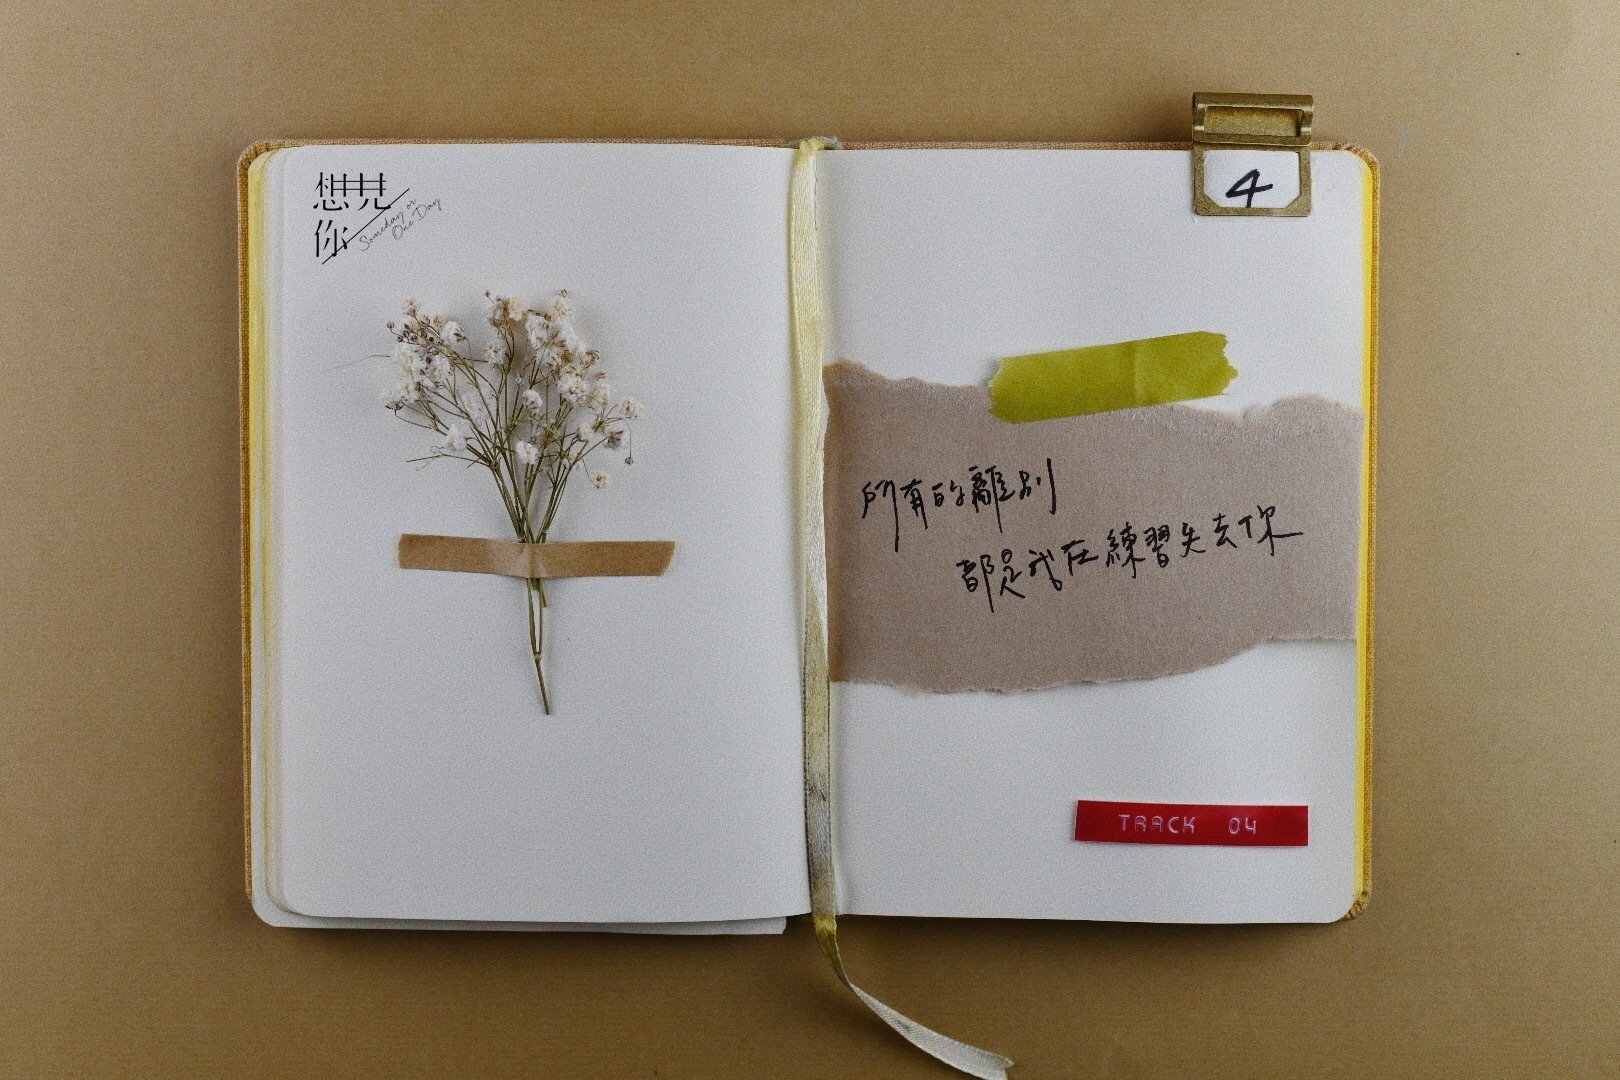 想見
你
Someday or
One Day
4
所有的離別
都是我在練習失去你
TRACK 04